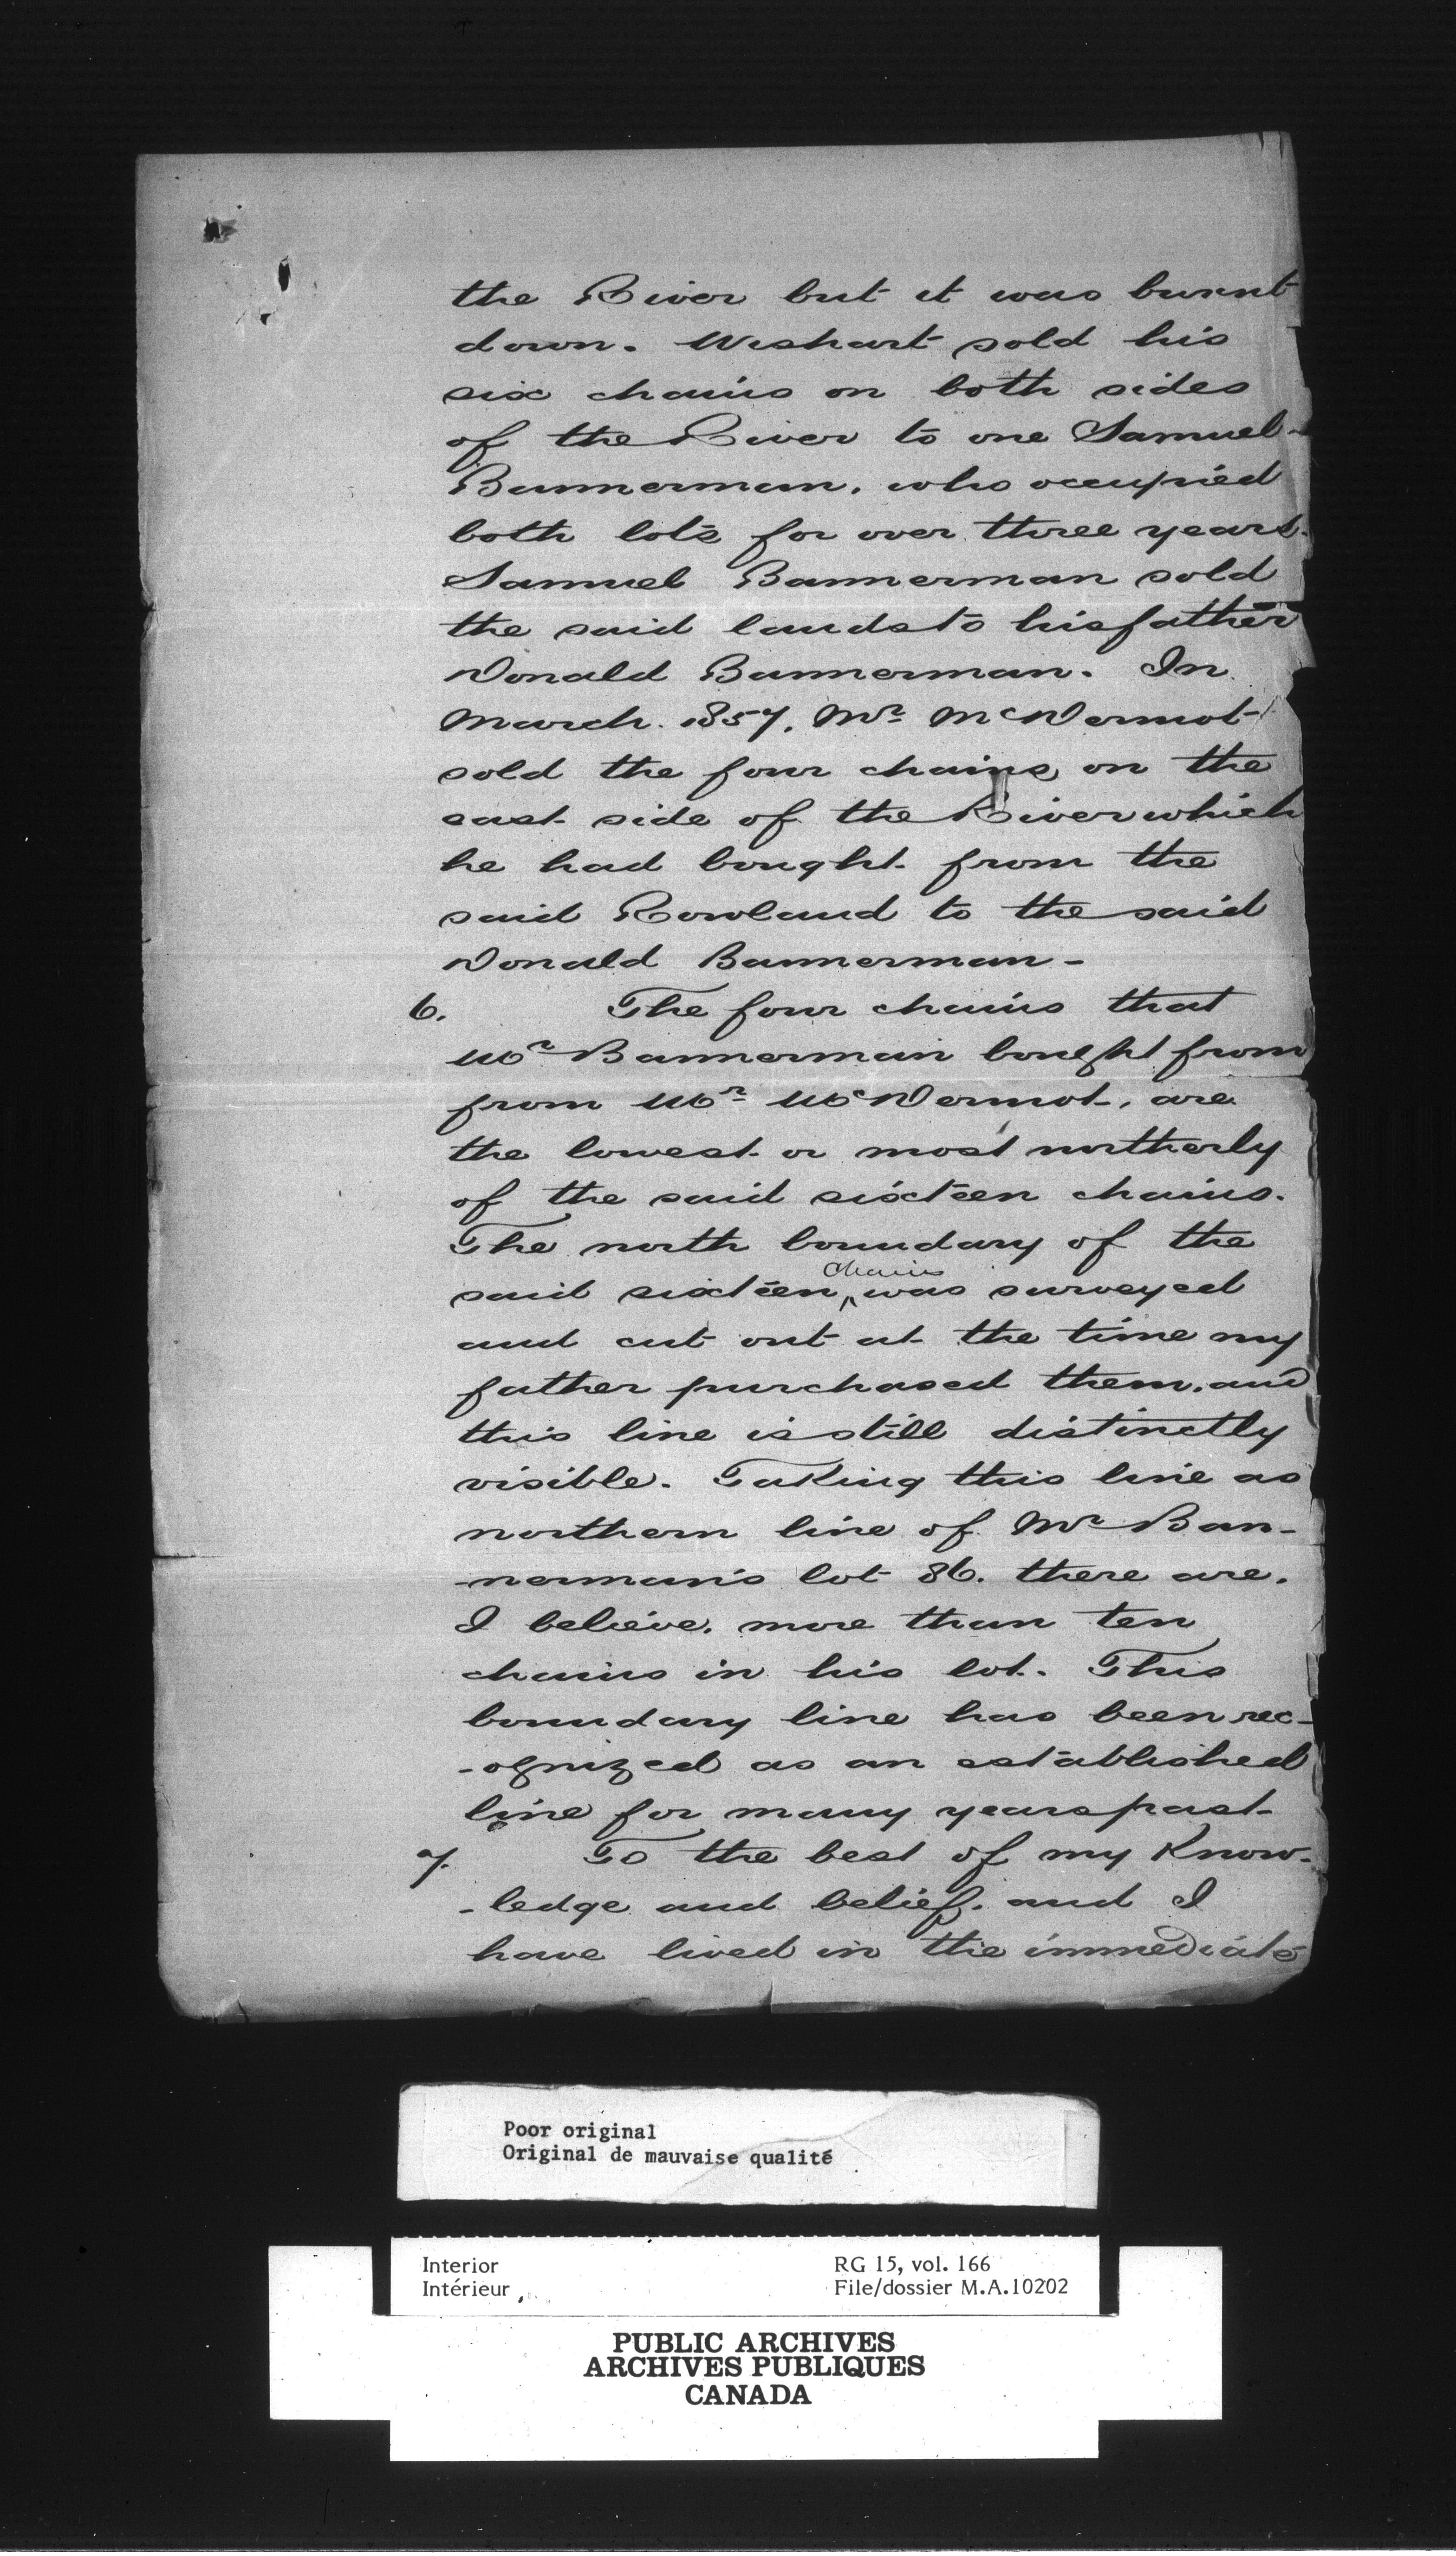 the River but it was burnt
down. Wishart sold his
six chains on both sides
of the River to one Samuel
Bannerman, who occupied
both lots for over three years.
Samuel Bannerman sold
the said lands to his father
Donald Bannerman. In
March 1857, Mr McDermot
sold the four chains on the
east side of the River which
he had bought from the
said Rowland to the said
Donald Bannerman -
6. The four chains that
Mr Bannerman bought from
from Mr McDermot, are
the lowest or most northerly
of the said sixteen chains.
The north boundary of the
chains
said sixteen ^ was surveyed
and cut out at the time my
father purchased them, and
this line is still distinctly
visible. Taking this line as
northern line of Mr Ban-
-nerman's lot 86. there are.
I believe, more than ten
chains in his lot. This
boundary line has been rec-
-ognized as an established
line for many years past
7. To the best of my Know-
-ledge and belief, and I
have lived in the immediate
Poor original
Original de mauvaise qualité
Interior RG 15, vol. 166
Intérieur File/dossier M.A.10202
PUBLIC ARCHIVES
ARCHIVES PUBLIQUES
CANADA